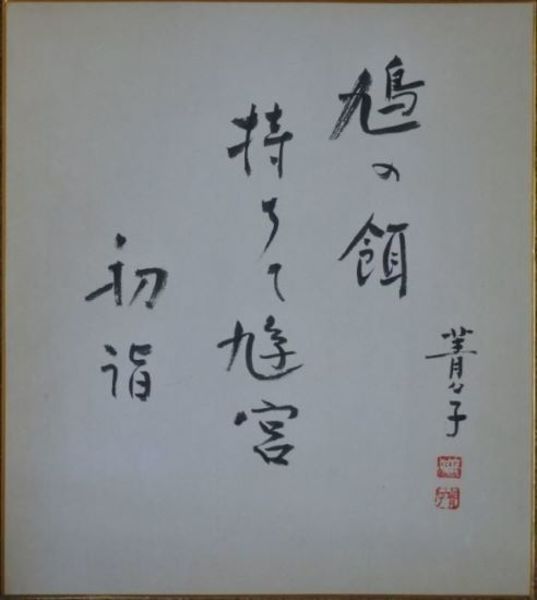 鳩の餌
持ちて鳩宮
初詣
菁々子